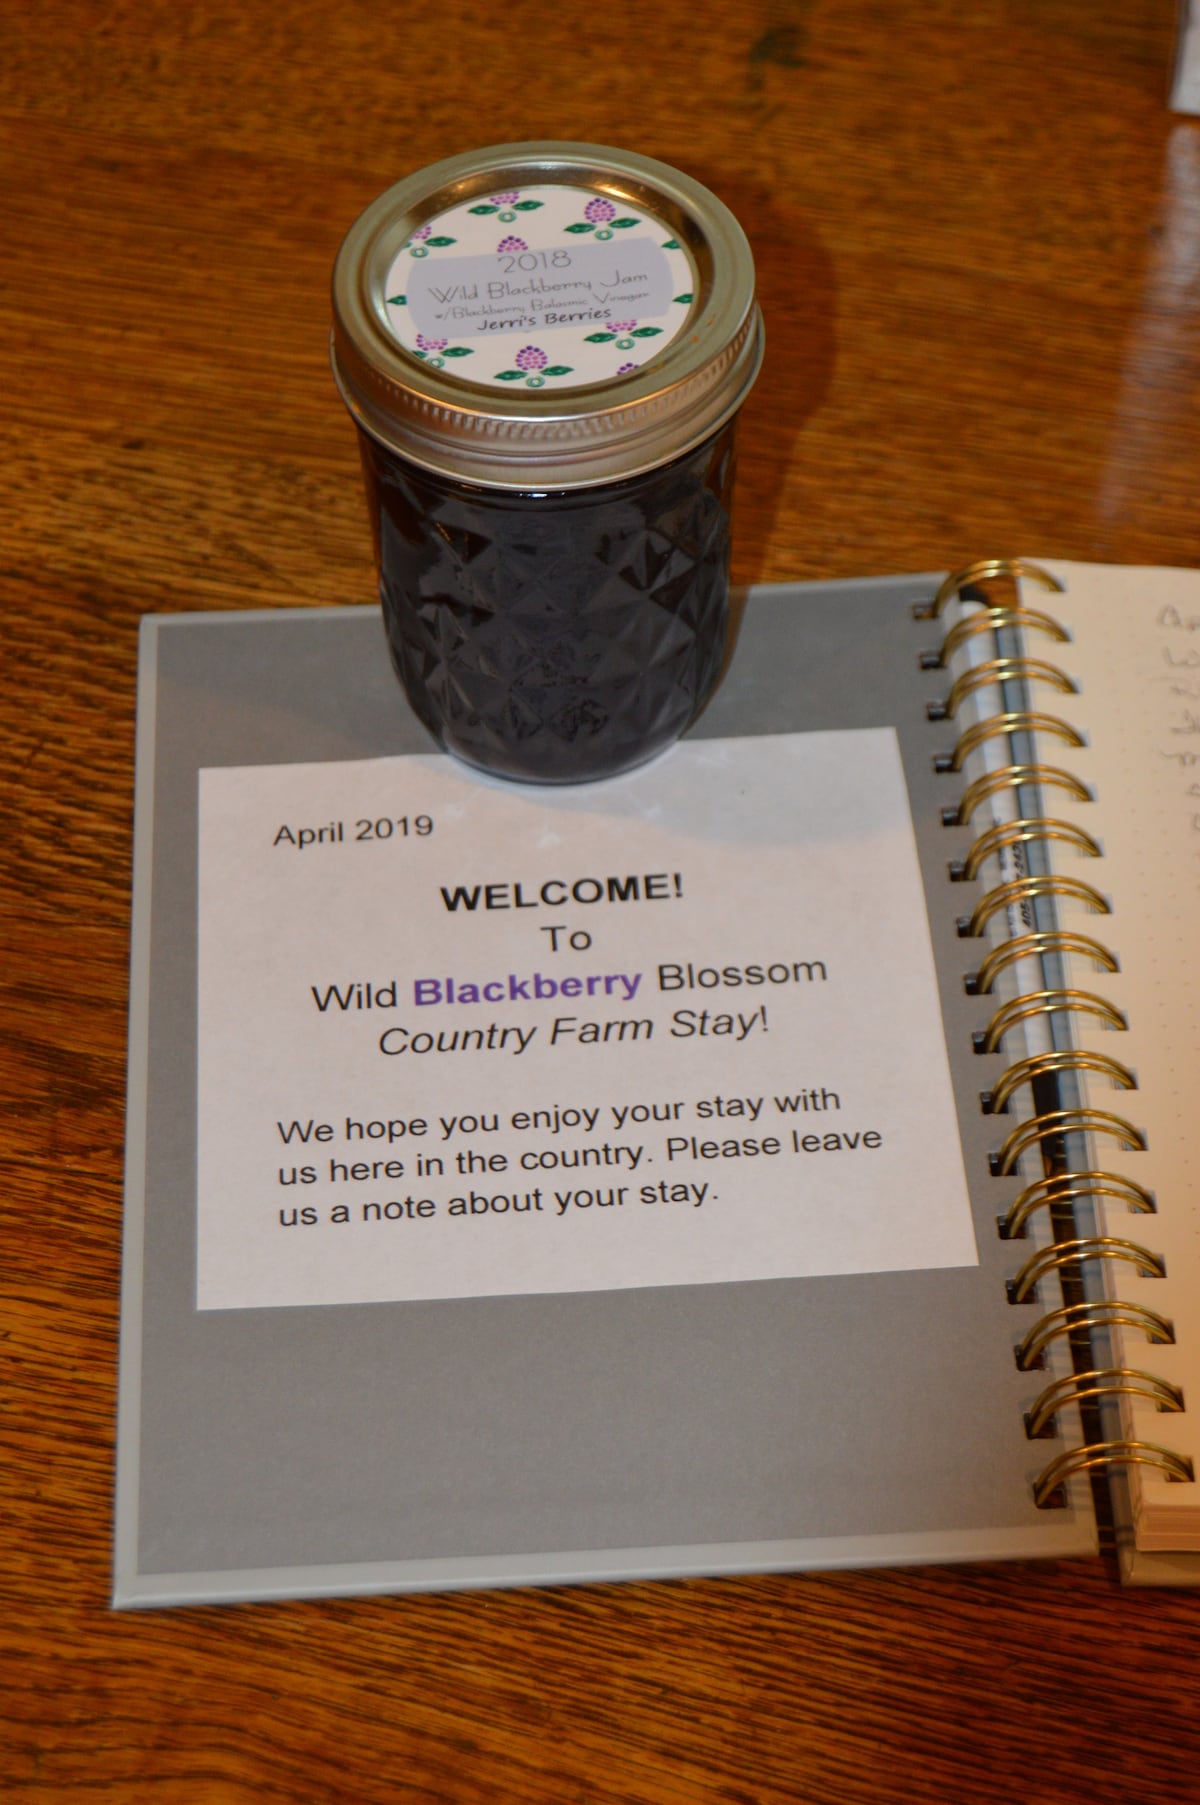 2018
Wild Blackberry Jam
w/Blackberry Balasmic Vinegar
Jerri's Berries
April 2019
WELCOME!
To
Wild Blackberry Blossom
Country Farm Stay!
We hope you enjoy your stay with
us here in the country. Please leave
us a note about your stay.